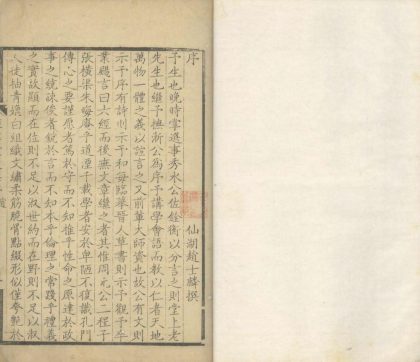 序
仙湖趙士麟撰
予生也晚時掌選事秀水公佐銓衡以分言之則堂上老
先生也繼予撫浙公為序予講學會語而教以仁者天地
萬物一體之義以誼言之又前輩大師資也故公有文則
示予序有詩則示予和每臨摹晉人草書則示予觀予卒
業颺言曰六經而後無文章繼之者其惟周元公二程子
張橫渠朱晦庵乎道湮千載學者安於卑陋不復識孔門
傳心之要謹愿者篤於守而不知推乎性命之原達於政
事之統疎俊者銳於言而不知本乎倫理之常踐乎禮義
之實故顯而在位則不足以淑世約而在野則不足以淑
人徒抽青媲白組織文繡柔筋脆骨點綴形似僅夸艷於